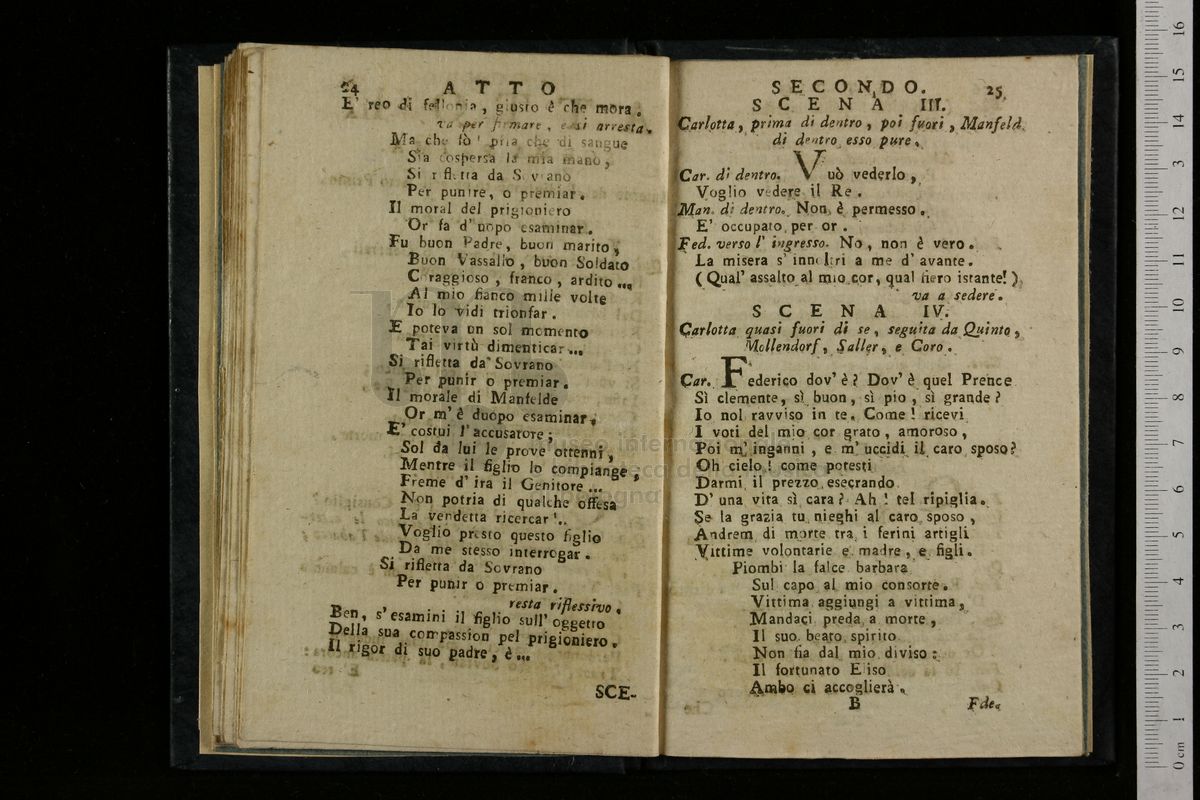 24 ATTO
E' reo di fellonia, giusto è che mora.
va per firmare, e si arresta.
Ma che fò! pria che di sangue
Sia cospersa la mia mano,
Si rifletta da Sovrano
Per punire, o premiar.
Il moral del prigioniero
Or fa d'uopo esaminar.
Fu buon Padre, buon marito,
Buon Vassallo, buon Soldato
Coraggioso, franco, ardito...
Al mio fianco mille volte
Io lo vidi trionfar.
E poteva un sol momento
Tai virtù dimenticar...
Si rifletta da Sovrano
Per punir o premiar.
Il morale di Manfelde
Or m'è duopo esaminar,
E' costui l'accusatore;
Sol da lui le prove ottenni,
Mentre il figlio lo compiange,
Freme d'ira il Genitore...
Non potria di qualche offesa
La vendetta ricercar!..
Voglio presto questo figlio
Da me stesso interrogar.
Si rifletta da Sovrano
Per punir o premiar.
resta riflessivo.
Ben, s'esamini il figlio sull'oggetto
Della sua compassion pel prigioniero.
Il rigor di suo padre, è...
SCE-
SECONDO. 25
SCENA III.
Carlotta, prima di dentro, poi fuori, Manfeld
di dentro esso pure.
Car. di dentro. Vuò vederlo,
Voglio vedere il Re.
Man. di dentro. Non è permesso.
E' occupato per or.
Fed. verso l'ingresso. No, non è vero.
La misera s'innoltri a me d'avante.
(Qual'assalto al mio cor, qual fiero istante!)
va a sedere.
SCENA IV.
Carlotta quasi fuori di se, seguita da Quinto,
Mollendorf, Saller, e Coro.
Car. Federico dov'è? Dov'è quel Prence
Sì clemente, sì buon, sì pio, sì grande?
Io nol ravviso in te. Come! ricevi
I voti del mio cor grato, amoroso,
Poi m'inganni, e m'uccidi il caro sposo?
Oh cielo! come potesti
Darmi il prezzo esecrando
D'una vita sì cara? Ah! tel ripiglia.
Se la grazia tu nieghi al caro sposo,
Andrem di morte tra i ferini artigli
Vittime volontarie e madre, e figli.
Piombi la falce barbara
Sul capo al mio consorte.
Vittima aggiungi a vittima,
Mandaci preda a morte,
Il suo beato spirito
Non fia dal mio diviso:
Il fortunato Eliso
Ambo ci accoglierà.
B Fde.